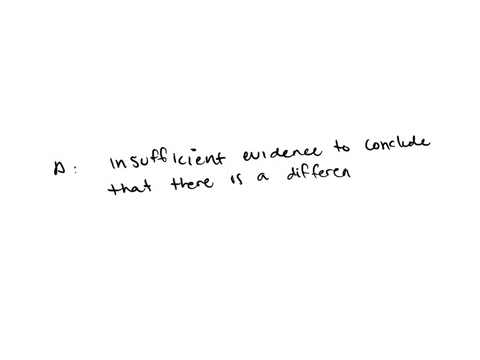 D: Insufficient evidence to conclude
that there is a differen